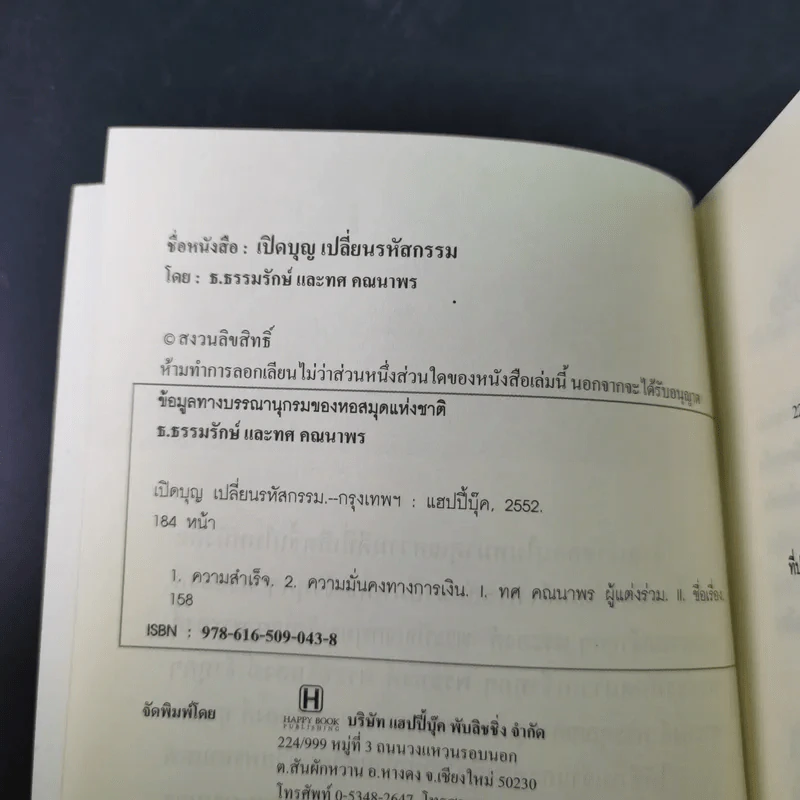 ชื่อหนังสือ : เปิดบุญ เปลี่ยนรหัสกรรม
โดย : ธ.ธรรมรักษ์ และทศ คณนาพร
© สงวนลิขสิทธิ์
ห้ามทำการลอกเลียนไม่ว่าส่วนหนึ่งส่วนใดของหนังสือเล่มนี้ นอกจากจะได้รับอนุญาต
ข้อมูลทางบรรณานุกรมของหอสมุดแห่งชาติ
ธ.ธรรมรักษ์ และทศ คณนาพร
เปิดบุญ เปลี่ยนรหัสกรรม.--กรุงเทพฯ : แฮปปี้บุ๊ค, 2552.
184 หน้า
1. ความสำเร็จ. 2. ความมั่นคงทางการเงิน. I. ทศ คณนาพร ผู้แต่งร่วม. II. ชื่อเรื่อง.
158
ISBN : 978-616-509-043-8
จัดพิมพ์โดย
H
HAPPY BOOK
PUBLISHING
บริษัท แฮปปี้บุ๊ค พับลิชชิ่ง จำกัด
224/999 หมู่ที่ 3 ถนนวงแหวนรอบนอก
ต.สันผักหวาน อ.หางดง จ.เชียงใหม่ 50230
โทรศัพท์ 0-5348-2647,